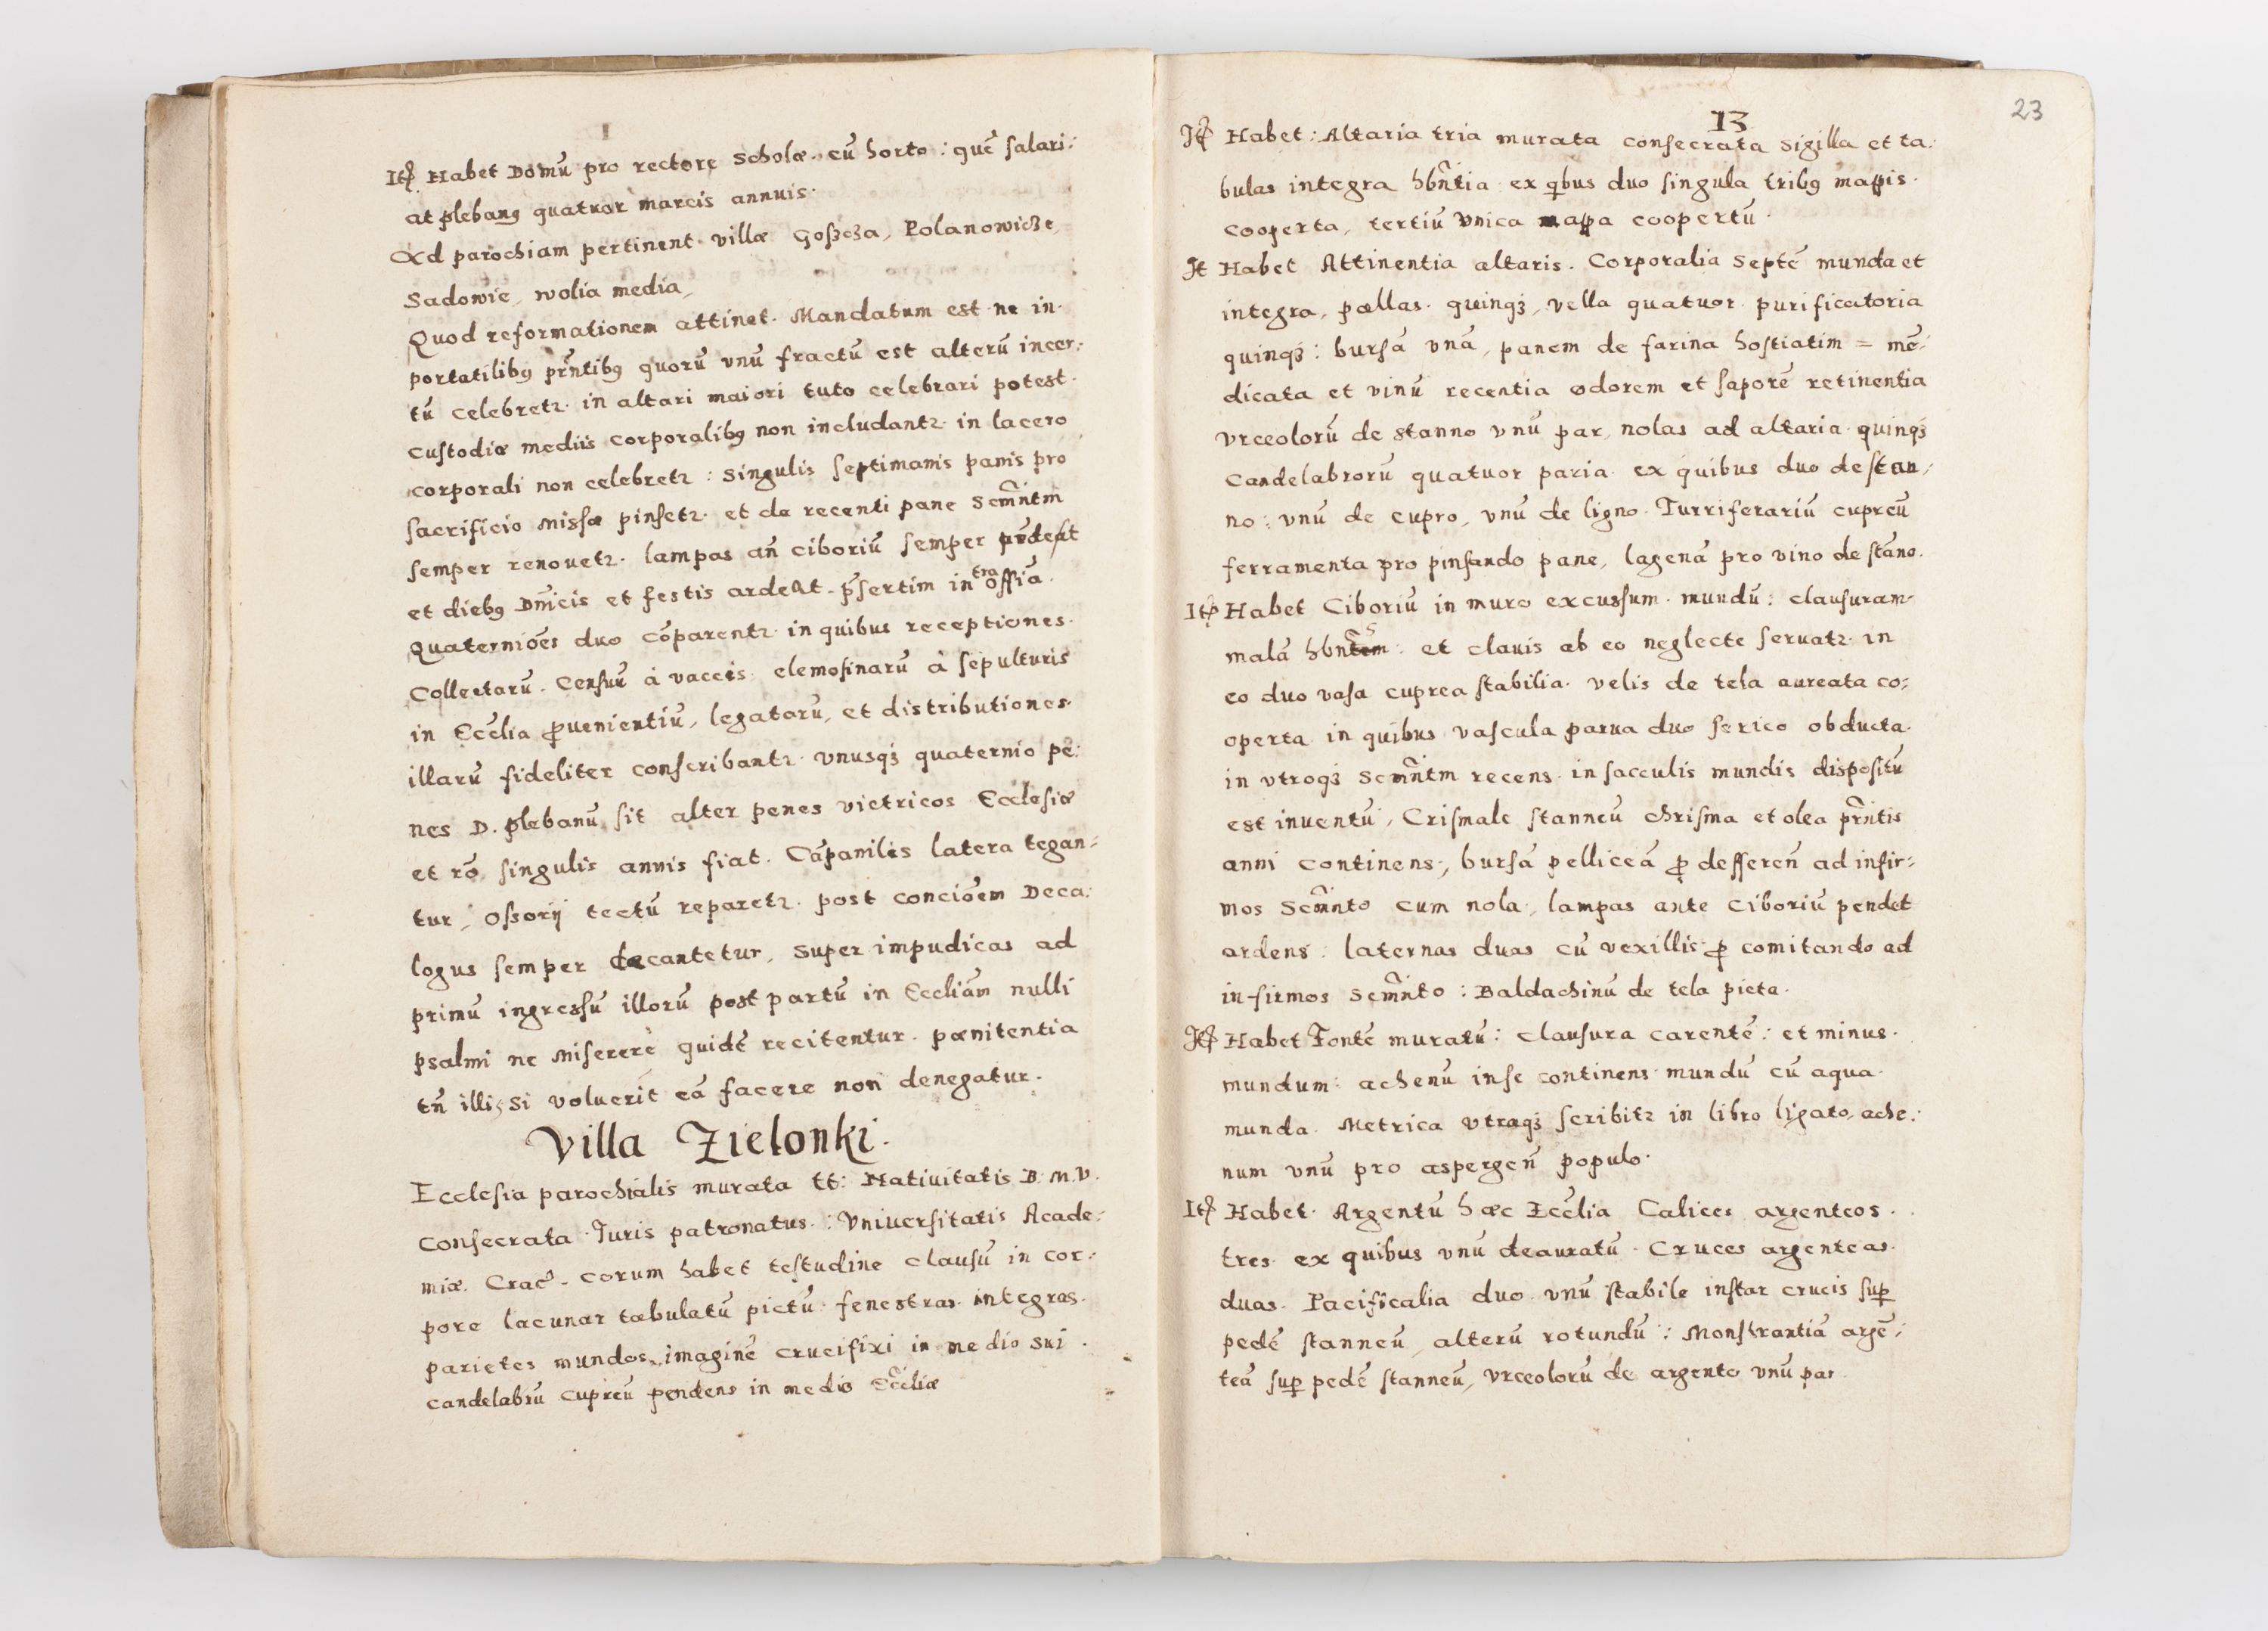 Itē Habet Domū pro rectore scholæ cū horto : quē salari:
at plebanꝰ quatuor marcis annuis.
Ad parochiam pertinent villæ Goßcza, Polanowicze,
Sadowie, wolia media,
Quod reformationem attinet. Mandatum est ne in
portatilibꝰ pr̃ntibꝰ quorū vnū fractū est alterū incer:
tū celebretr. in altari maiori tuto celebrari potest.
custodiæ mediis corporalibꝰ non includantr. in lacero
corporali non celebretr : singulis septimanis panis pro
sacrificio missæ pinsetr. et de recenti pane Scm̃ntm
semper renouetr. lampas an̄ ciboriū semper
et diebꝰ Dn̄icis et festis ardeat. p̄sertim intra offia.
Quaternioēs duo cōparentr. in quibus receptiones.
Collectarū. Censuū à vaccis, elemosinarū à sepulturis
in Eccl̄ia ꝓuenientiū, legatorū, et distributiones.
illarū fideliter conscribantr. vnusqꝫ quaternio pe:
nes D. plebanū sit alter penes vietricos Ecclesiæ
et rō singulis annis fiat. Cāpanilis latera tegan=
tur, ossorij tectū reparetr. post concioēm Deca:
logus semper decantetur, super impudicas ad
primū ingressū illorū post partū in Eccliām nulli
psalmi ne Miserere quidē recitentur. pœnitentia
tn̄ illis si voluerit eā facere non denegatur.
Villa Zielonki.
Ecclesia parochialis murata tt: Natiuitatis B. M. V.
Consecrata Iuris patronatus : Vniuersitatis Acade:
miæ. Crac̄. corum habet testudine clausū in cor:
pore lacunar tabulatū pictū: fenestras integras.
parietes mundos, imaginē crucifixi in medio sui.
candelabrū cupreū pendens in medio Eccl̄iæ
13
23
Itē Habet : Altaria tria murata consecrata sigilla et ta:
bulas integra hbñtia : ex qibus duo singula tribꝰ mappis.
cooperta, tertiū vnica mappa coopertū.
It Habet Attinentia altaris. Corporalia septē munda et
integra, pallas. quinqꝫ, vella quatuor. purificatoria
quinqꝫ : bursā vnā, panem de farina hostiatim = mē:
dicata et vinū recentia odorem et saporē retinentia
vrceolorū de stanno vnū par, nolas ad altaria quinqꝫ
Candelabrorū quatuor paria ex quibus duo de stan:
no : vnū de cupro, vnū de ligno. Turriferariū cupreū
ferramenta pro pinsando pane, lagenā pro vino de stāno.
Itē Habet Ciboriū in muro excussum. mundū : clausuram
malā hbñtem : et clauis ab eo neglecte seruatr. in
eo duo vasa cuprea stabilia. velis de tela aureata co:
operta in quibus vascula parua duo serico obducta.
in vtroqꝫ Scm̃ntm recens in sacculis mundis dispositū
est inuentū, Crismale stanneū chrisma et olea pr̃ntis
anni continens, bursā pelliceā ꝓ defferen̄ ad infir:
mos Scm̃nto cum nola, lampas ante Ciboriū pendet
ardens : laternas duas cū vexillis ꝓ comitando ad
infirmos Scm̃nto : Baldachinū de tela picta.
Itē Habet Fontē muratū : clausura carentē : et minus.
mundum : achenū inse continens mundū cū aqua.
munda. Metrica vtraqꝫ scribitr in libro ligato, ache:
num vnū pro aspergen̄ populo.
Itē Habet Argentū hæc Eccl̄ia Calices argenteos.
tres ex quibus vnū deauratū. Cruces argenteas.
duas. Pacificalia duo vnū stabile instar crucis suꝑ
pedē stanneū, alterū rotundū : Monstrantiā argē:
teā suꝑ pedē stanneū, vrceolorū de argento vnū par.